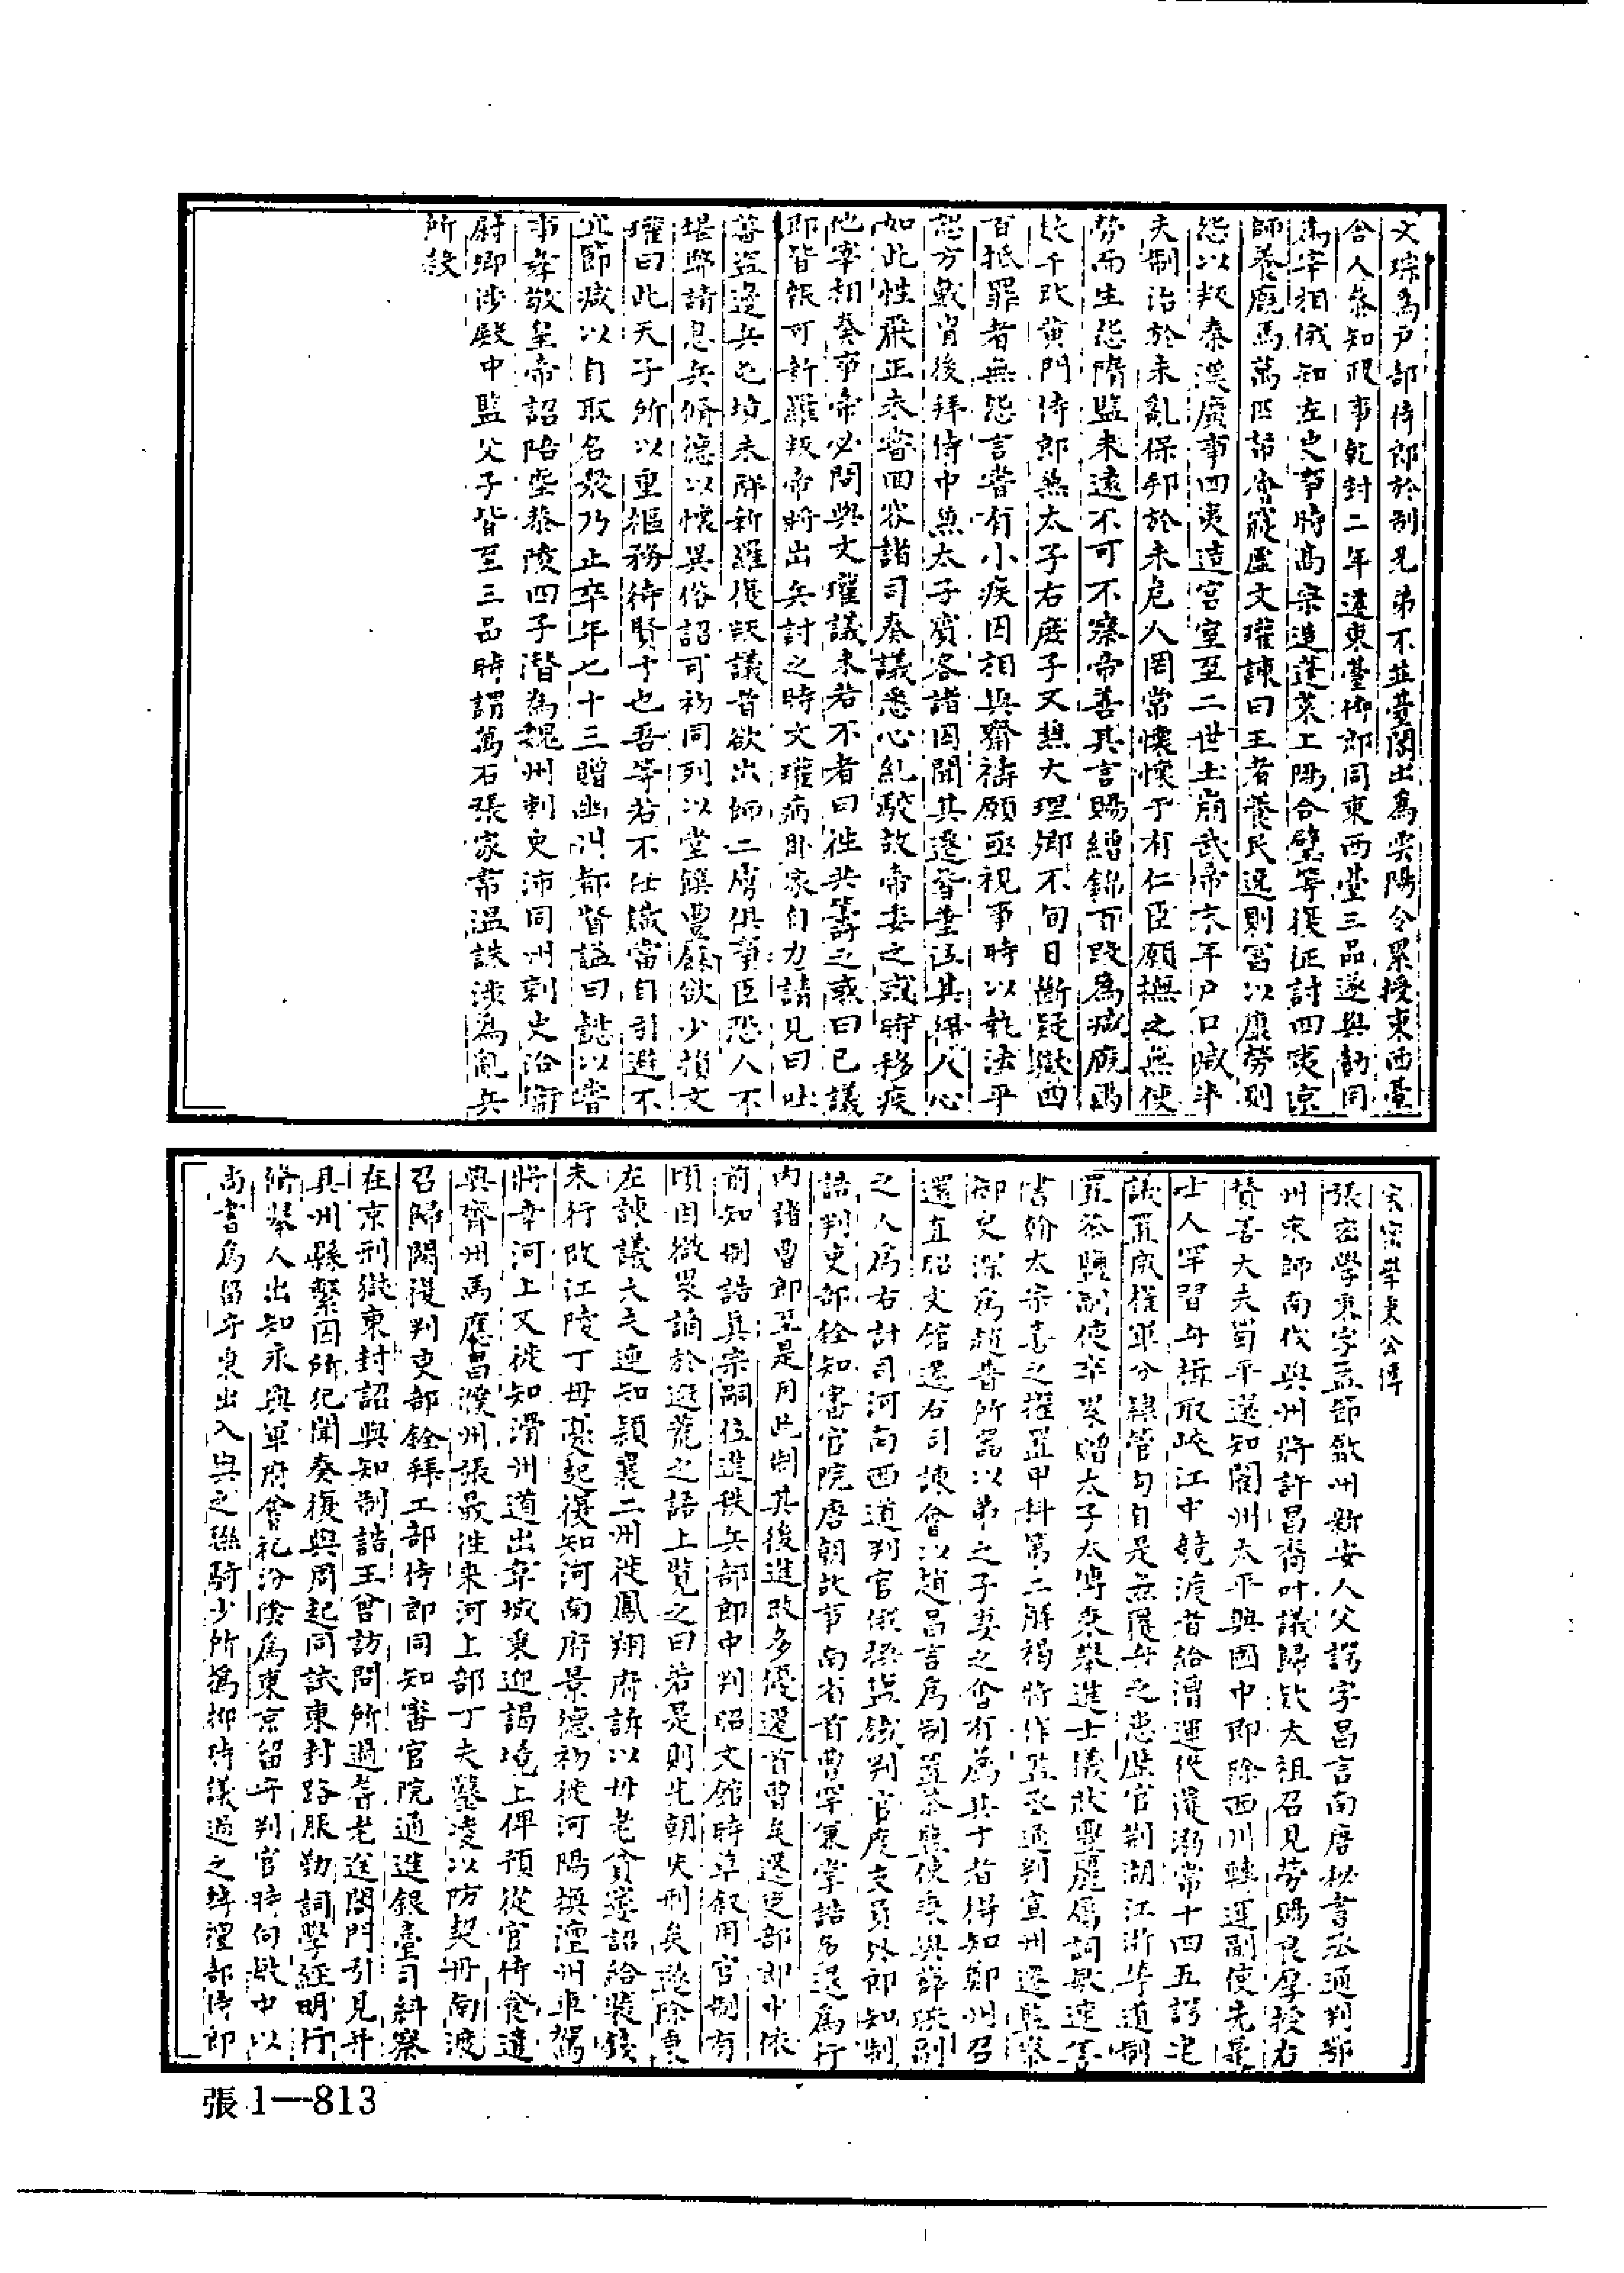 文琮爲戶部侍郎於制兄弟不並臺閣出爲雲陽令累授東西臺
舍人叅知政事乾封二年遷東臺侍郎同東西臺三品遂與勣同
爲宰相俄知左史事時高宗造蓬萊上陽合璧等復征討四夷京
師養廐馬萬匹帑𢋫寖虛文瓘諫曰王者養民逸則富以康勞則
怨以叛秦漢廣事四夷造宮室至二世土崩武帝末年戶口減半
夫制治於未亂保邦於未危人罔常懷懷于有仁臣願撫之無使
勞而生怨隋監未遠不可不察帝善其言賜繒錦百段爲減廐馬
數千改黃門侍郎兼太子右庶子又兼大理卿不旬日斷疑獄四
百抵罪者無怨言嘗有小疾囚相與齋禱願亟視事時以執法平
恕方戴胄後拜侍中兼太子賓客諸囚聞其遷皆垂泣其得人心
如此性嚴正未嘗回容諸司奏議悉心糺駁故帝委之或時移疾
他宰相奏事帝必問與文瓘議未若不者曰往共籌之或曰已議
即皆報可新羅叛帝將出兵討之時文瓘病臥家自力請見曰吐
蕃盜邊兵屯境未解新羅復叛議者欲出師二虜俱事臣恐人不
堪弊請息兵脩德以懷異俗詔可初同列以堂饌豐餘欲少損文
瓘曰此天子所以重樞務待賢才也吾等若不任職當自引避不
宜節減以自取名衆乃止卒年七十三贈幽州都督諡曰懿以嘗
事孝敬皇帝詔陪塟恭陵四子潛爲魏州刺史沛同州刺史洽衛
尉卿涉殿中監父子皆至三品時謂萬石張家韋溫誅涉爲亂兵
所殺
宋宻學秉公傳
張宻學秉字孟節歙州新安人父諤字昌言南唐秘書丞通判鄂
州宋師南伐與州將許昌裔叶議歸欵太祖召見勞賜良厚授右
贊善大夫蜀平選知閬州太平興國中即除西川轉運副使先是
士人罕習舟楫取峽江中競渡者給漕運役覆溺常十四五諤建
議置威櫂軍分隸管勾自是無覆舟之患歷官荆湖江浙等道制
置茶鹽副使卒累贈太子太傅秉舉進士儀狀豐麗屬詞敏速善
書翰太宗喜之擢置甲科第二解褐將作監丞通判宣州遷監察
御史深爲趙普所器以弟之子妻之會有薦其才者得知鄭州召
還直昭文館遷右司諫會以趙昌言爲制置茶鹽使秉與薛暎副
之人爲右計司河南西道判官俄掾鹽鐵判官度支員外郎知制
誥判吏部銓知審官院唐朝故事南省首曹罕兼掌誥多退爲行
内諸曹郎至是用此制其後進改多優還首曹矣遷吏部郎中依
前知制誥眞宗嗣位進秩兵部郎中判昭文館時草叙用官制有
頃因微累謫於遐荒之語上覽之曰若是則先朝失刑矣遂除秉
左諫議大夫連知潁襄二州徙鳳翔府訴以母老貧窶詔給裝錢
未行改江陵丁母憂起復知河南府景德初徙河陽換澶州車駕
將幸河上又徙知滑州道出韋城秉迎謁境上俾預從官侍食遣
與齊州馬應昌濮州張晟往來河上部丁夫鑿凌以防契丹南渡
召歸闕復判吏部銓拜工部侍郎同知審官院通進銀臺司糾察
在京刑獄東封詔與知制誥王曾訪問所過耆老送閤門引見并
具州縣繫囚所犯聞奏復與周起同試東封路服勤詞學經明行
脩舉人出知永興軍府會祀汾陰爲東京留守判官時向敏中以
尚書爲留守秉出入與之聯騎少所爲抑時議過之轉禮部侍郎
張 1—813